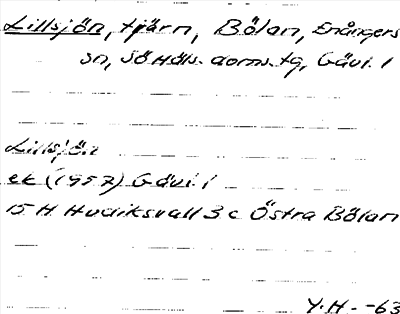 Lillsjön, tjärn, Bölan, Enångers
sn, Sö Häls. doms. tg, Gävl. l
Lillsjön
ek (1957) Gävl. l
15 H Hudiksvall 3 c Östra Bölan
Y. H. -63